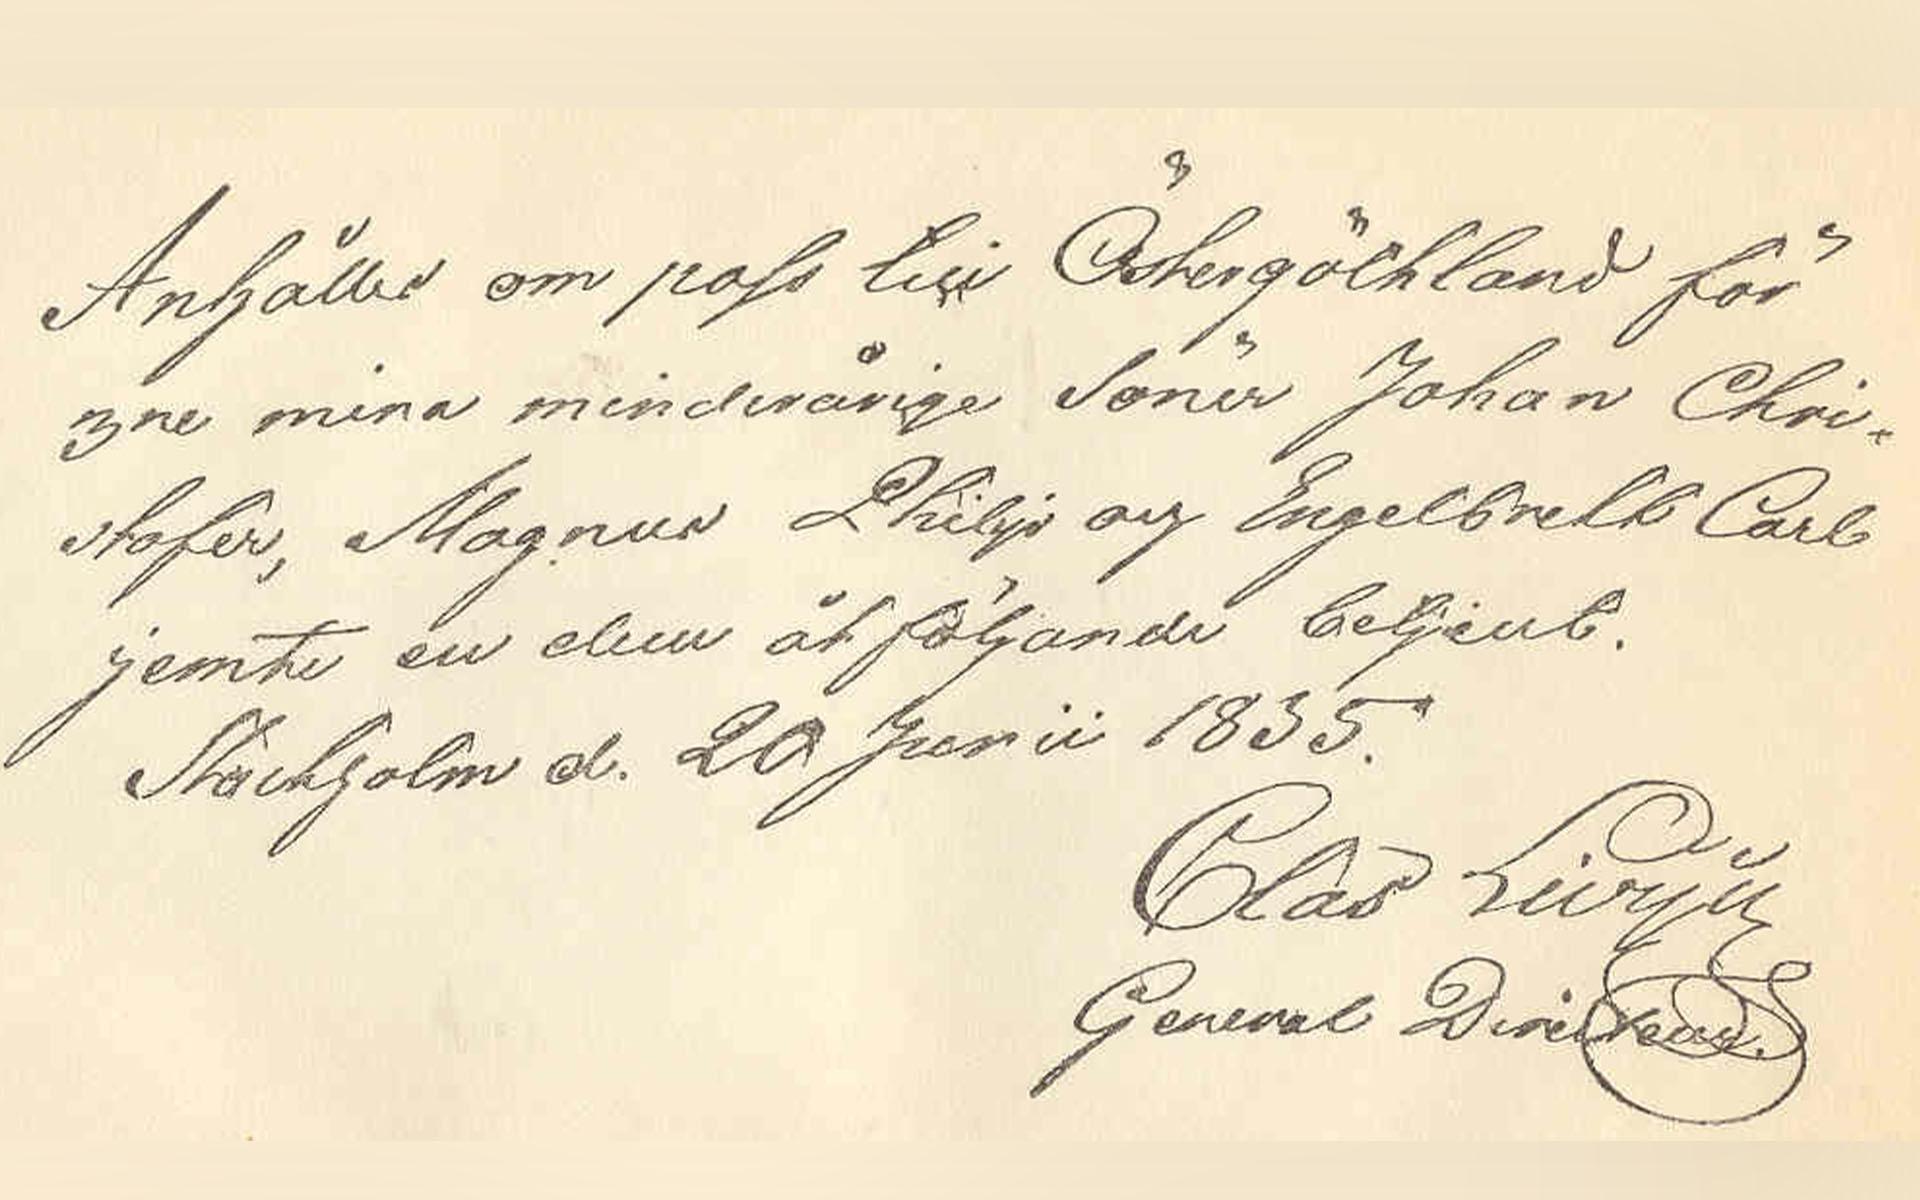 Anhålles om pass till Östergöthland för
3ne mina minderårige Söner Johan Chri-
stofer, Magnus Philip och Engelbrekt Carl
jemte en dem åtföljande betjent.
Stockholm d. 20 Junii 1835.
Clas Livijn
General Directeur.